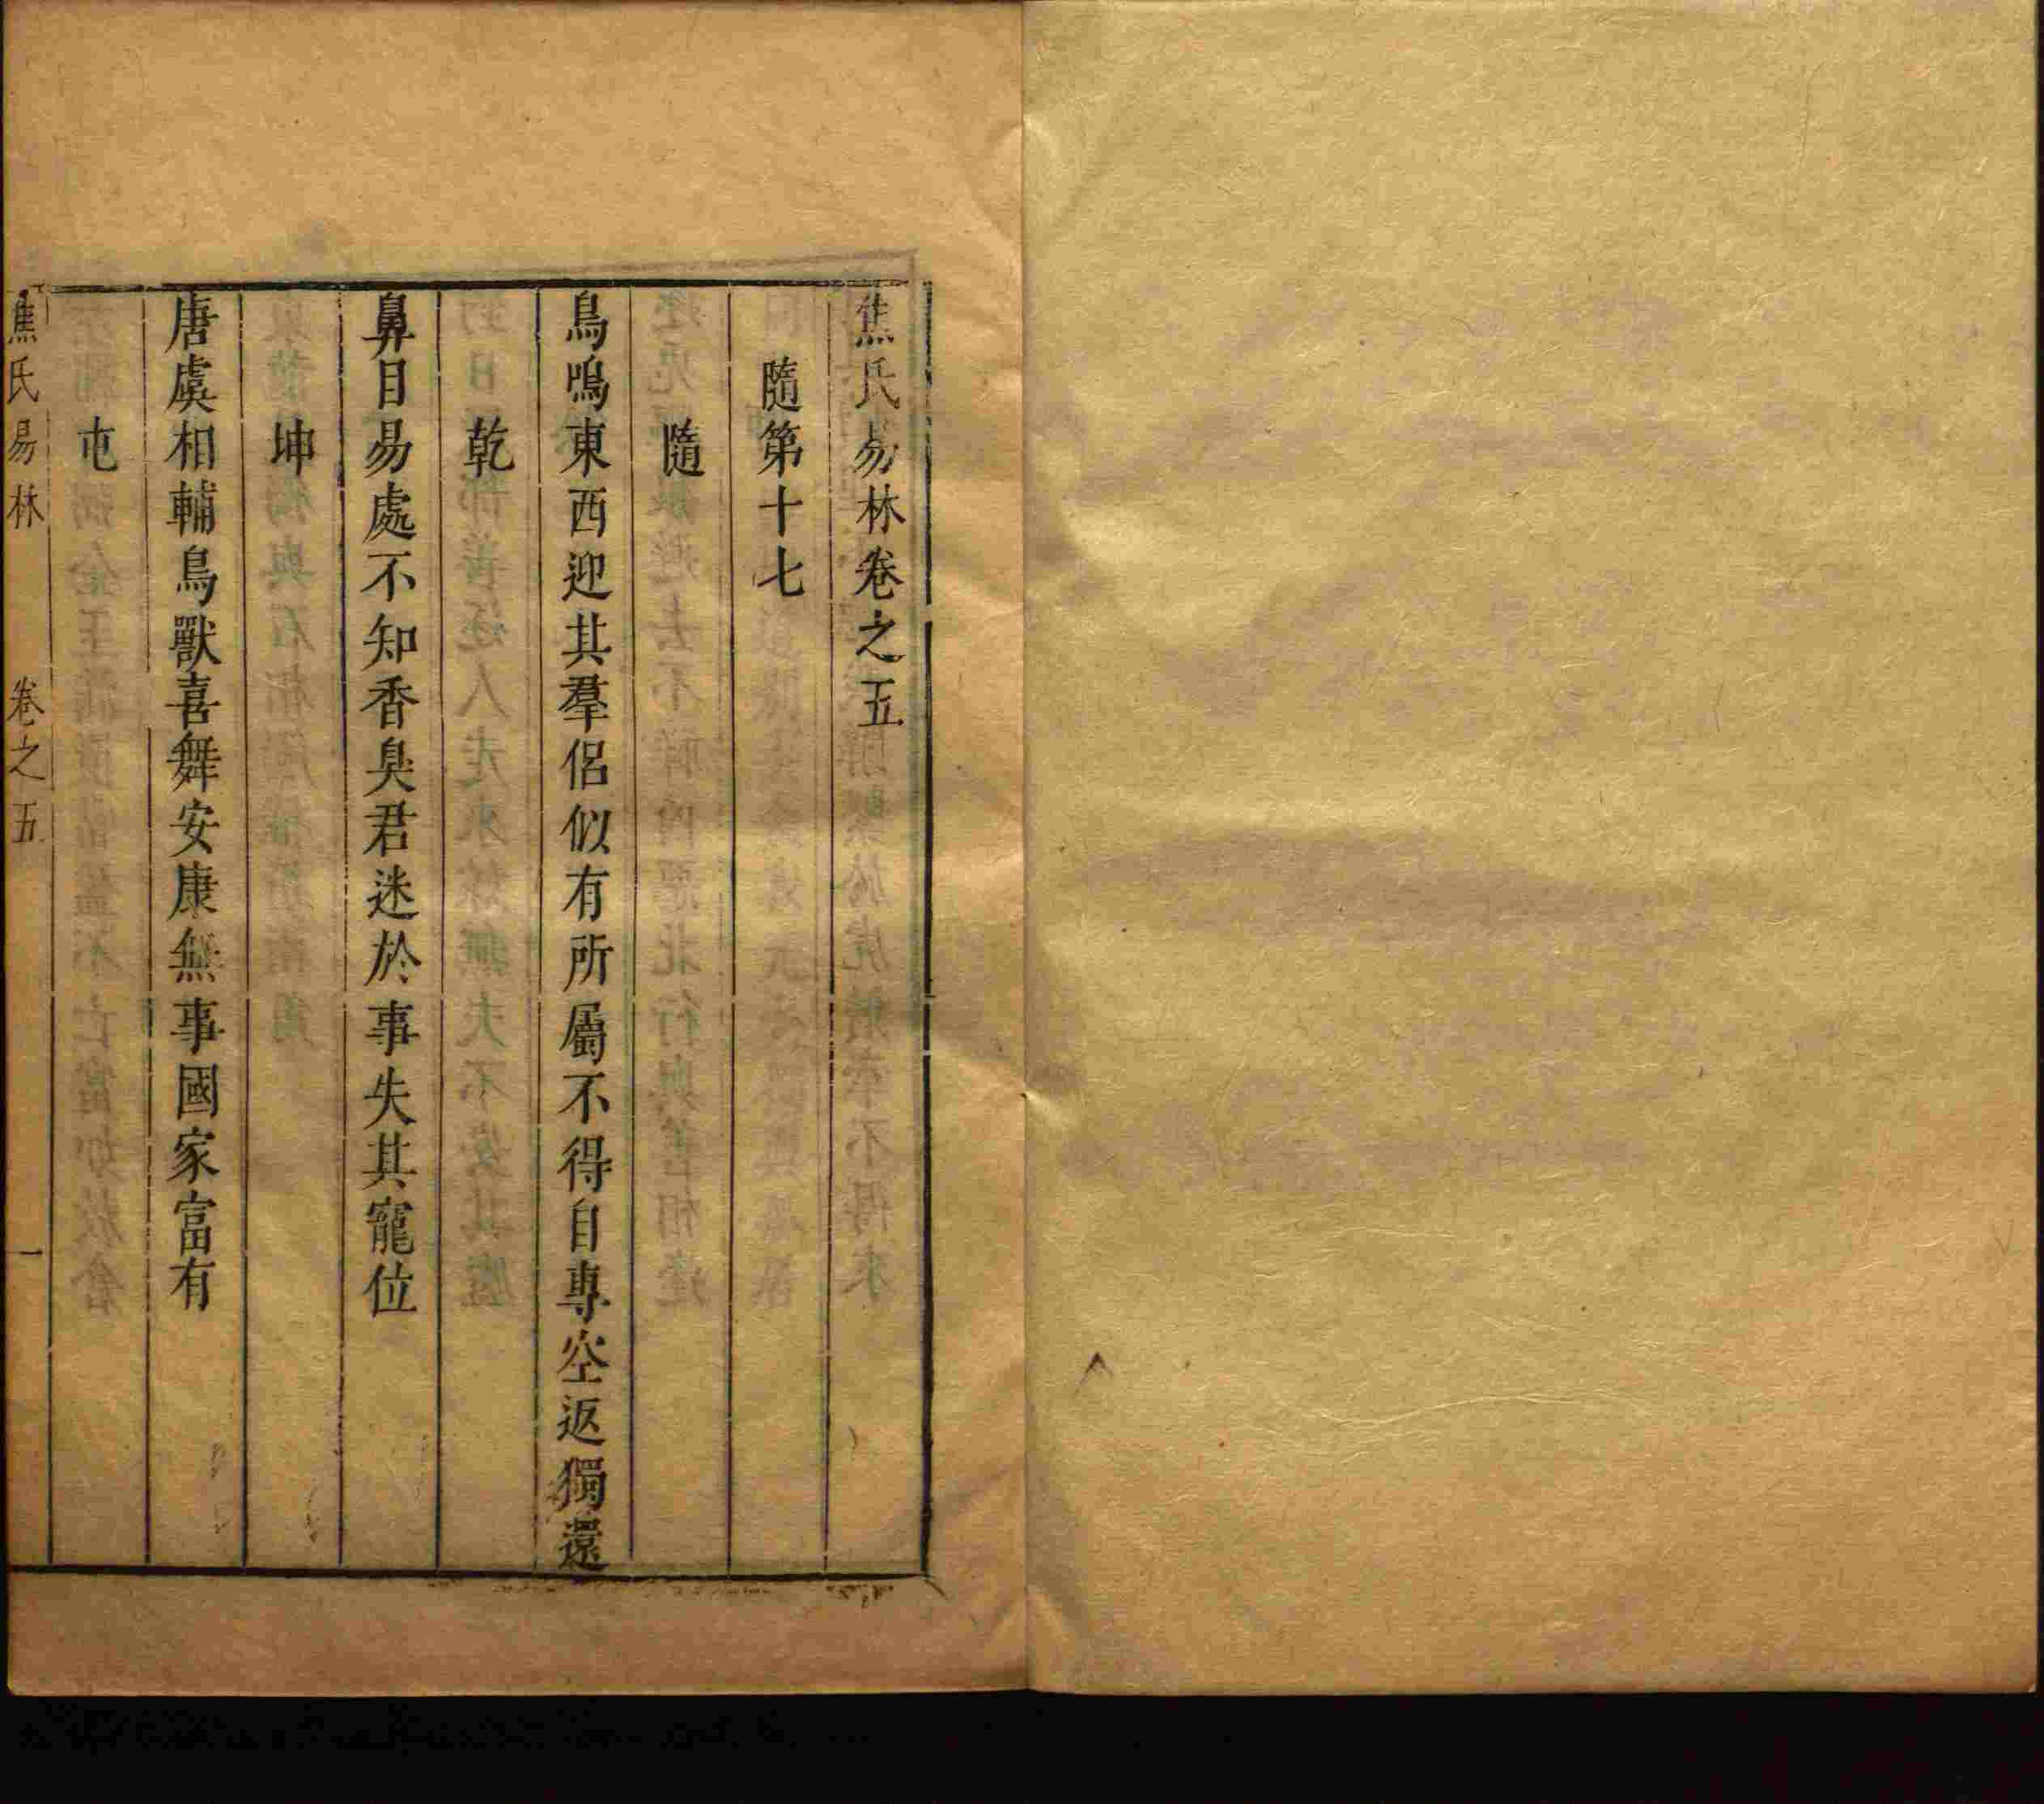 焦氏易林卷之五
隨第十七
隨
鳥鳴東西迎其羣侶似有所屬不得自專空返獨還
乾
鼻目易處不知香臭君迷於事失其寵位
坤
唐虞相輔鳥獸喜舞安康無事國家富有
屯
焦氏易林 卷之五 一